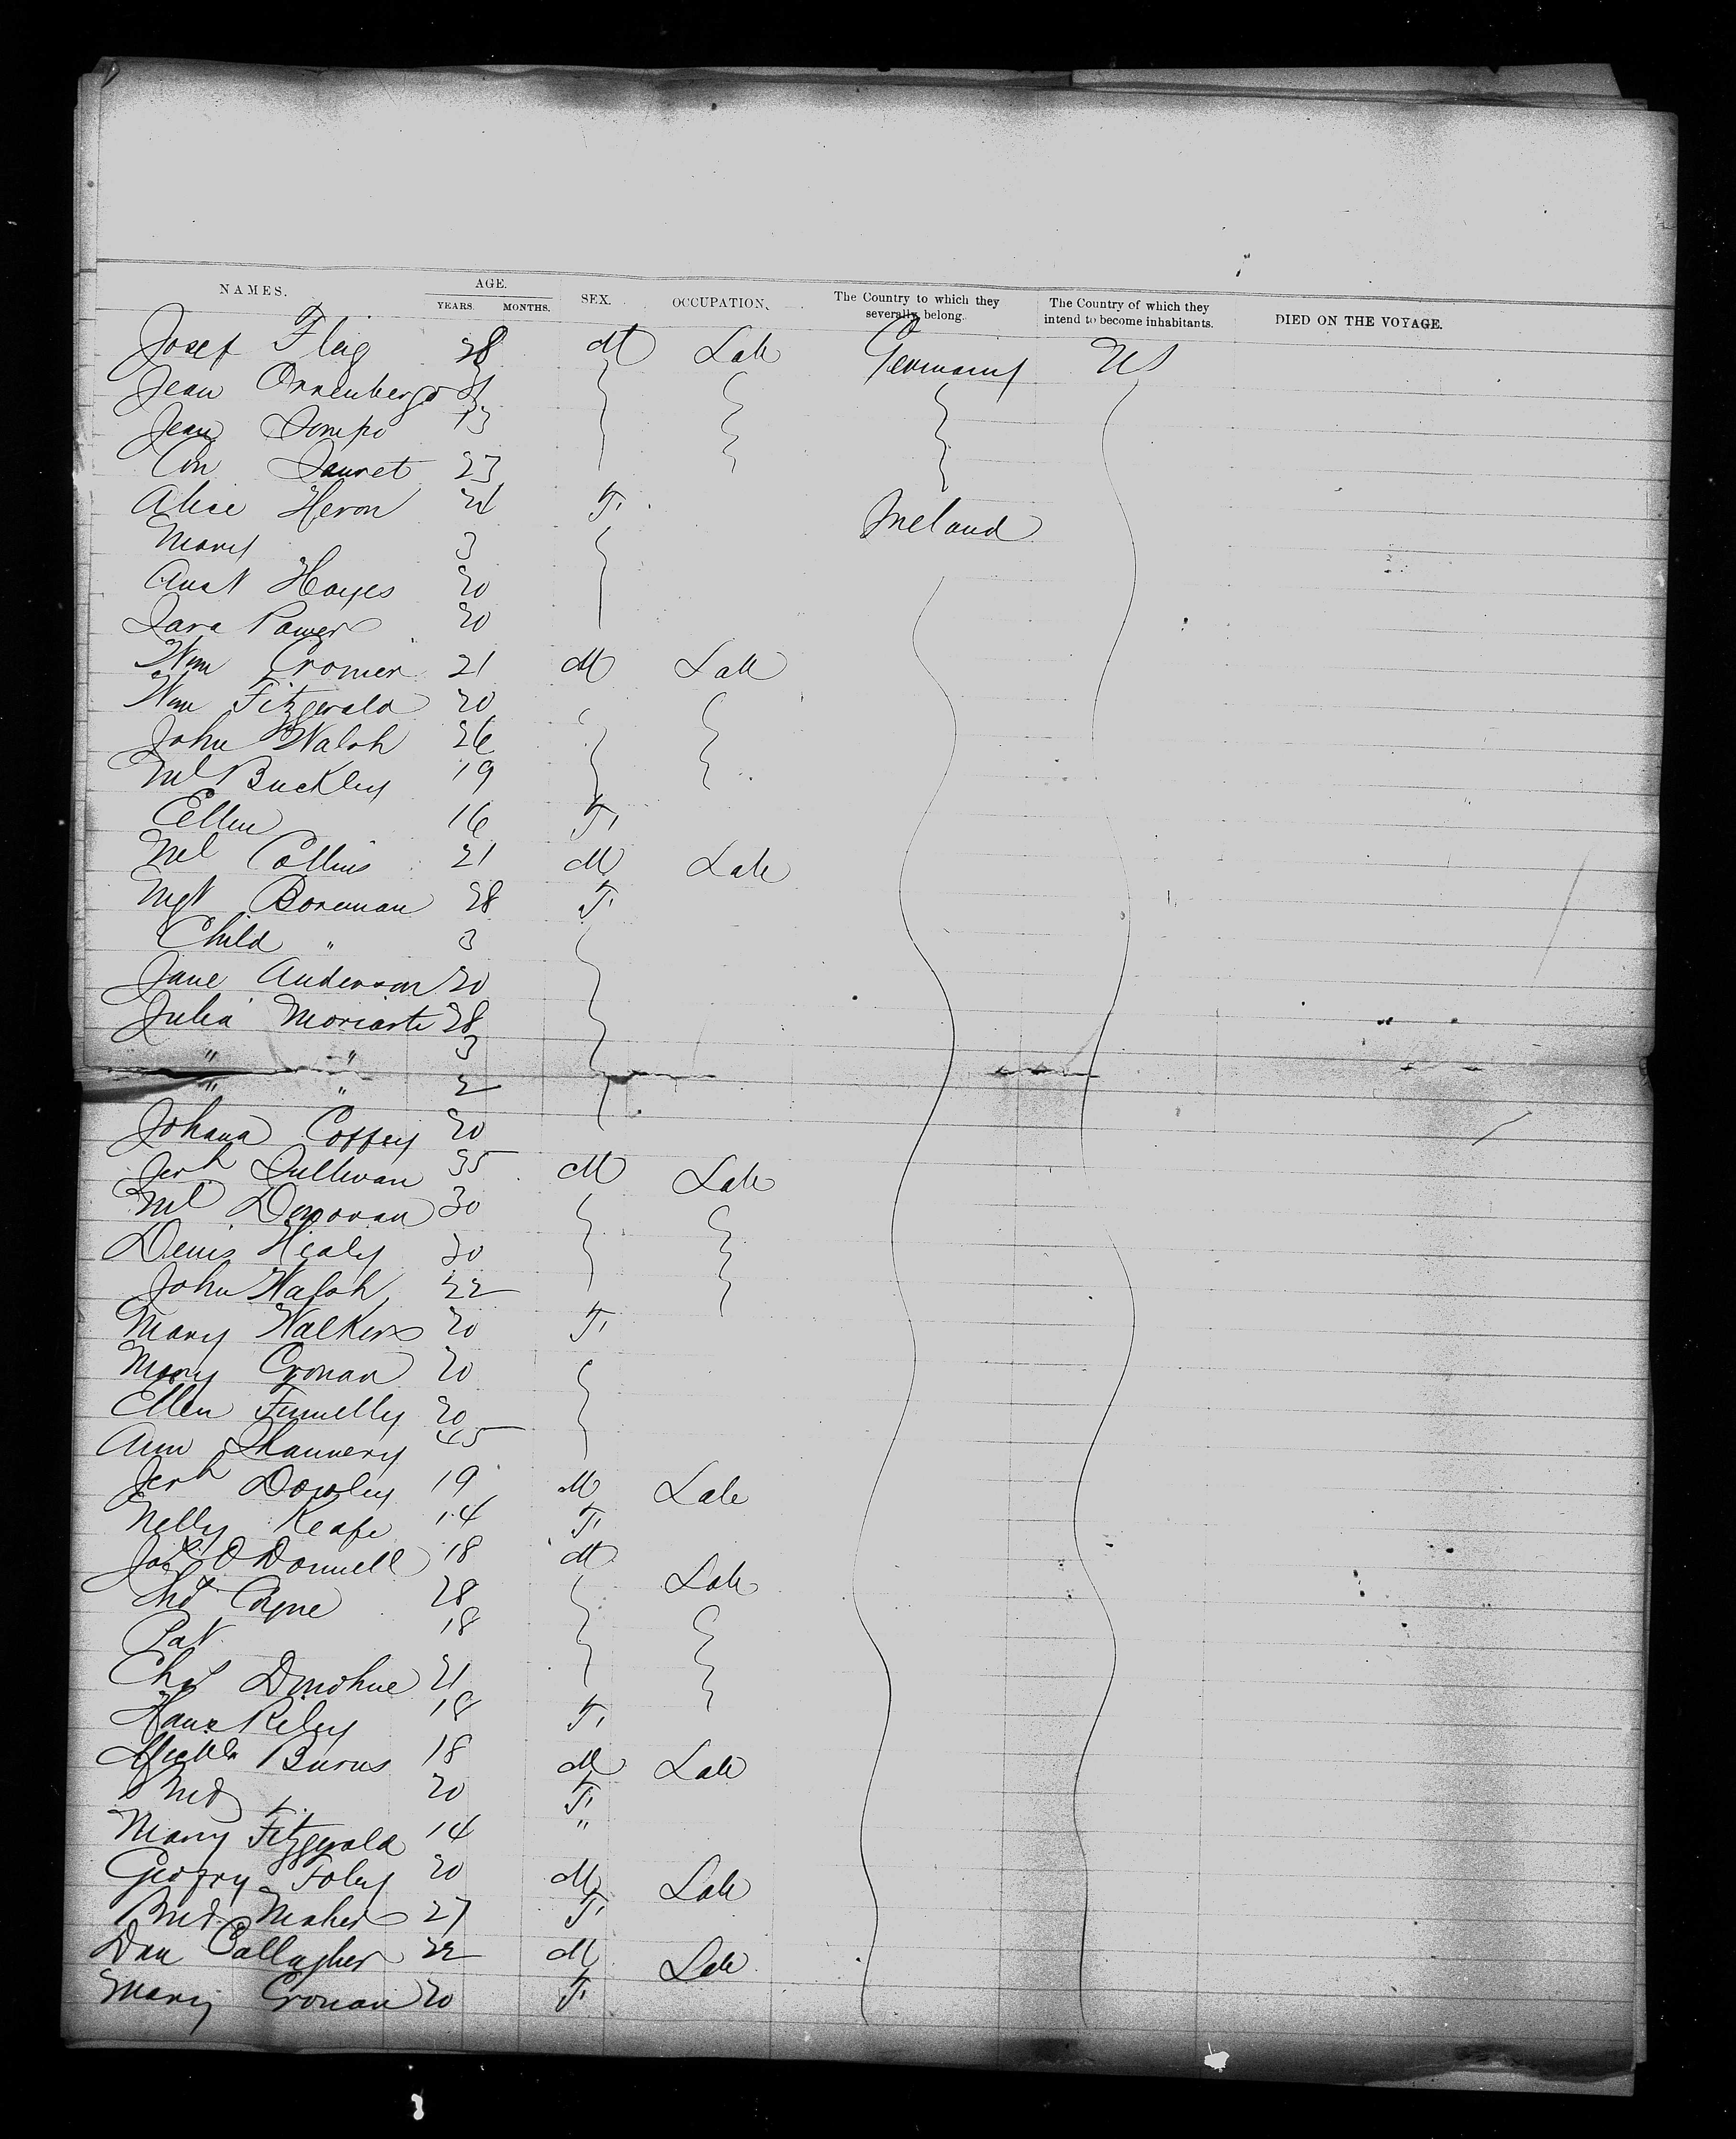 NAMES. AGE. SEX. OCCUPATION. The Country to which they severally belong. The Country of which they intend to become inhabitants. DIED ON THE VOYAGE.
YEARS. MONTHS.
Josef Flaig 28 M Lab Germany US
Jean 31
Jean 13
Con 23
Alice Heron 24 F. Ireland
Mary 3
Hayes 20
Power 20
Wm Cromer 21 M Lab
Wm Fitzgerald 20
John Walsh 26
Ml Buckley 19
Ellen 16 F.
Ml Collins 21 M Lab
Mgt Boreman 28 F.
Child " 3
Jane Anderson 20
Julia Moriarte 28
" " 3
" " 2
Johana Coffey 20
Jerh Sullivan 35 M Lab
Ml Donovan 30
Denis Healy 30
John Walsh 22
Mary Walkins 20 F.
Mary Cronan 20
Ellen Finnelly 20
Ann Shannery 45
Jerh Dowley 19 M Lab
Nelly Keafe 14 F.
Jas O Donnell 18 M
Coyne 28 Lab
Pat 18
Chas Donohue 21
Riley 18 F.
Burns 18 M Lab
20 F.
Mary Fitzgerald 14 "
Geofry Foley 20 M Lab
Maher 27 F.
Dan Callagher 22 M Lab
Mary Cronan 20 F.